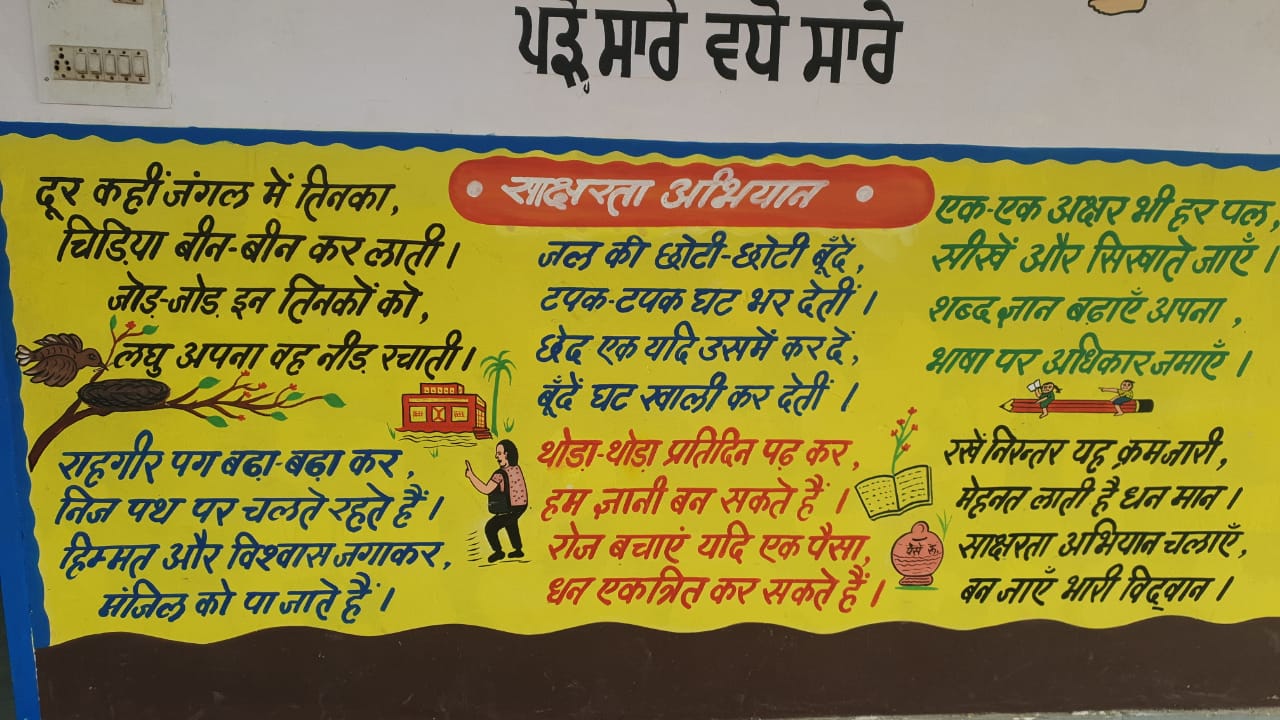 ਪੜ੍ਹੋ ਸਾਰੇ ਵਧੋ ਸਾਰੇ
साक्षरता अभियान
दूर कहीं जंगल में तिनका,
चिड़िया बीन-बीन कर लाती।
जोड़-जोड़ इन तिनकों को,
लघु अपना वह नीड़ रचाती।
राहगीर पग बढ़ा-बढ़ा कर,
निज पथ पर चलते रहते हैं।
हिम्मत और विश्वास जगाकर,
मंजिल को पा जाते हैं।
जल की छोटी-छोटी बूँदें,
टपक-टपक घट भर देतीं।
छेद एक यदि उसमें कर दें,
बूँदें घट खाली कर देतीं।
थोड़ा-थोड़ा प्रतिदिन पढ़ कर,
हम ज्ञानी बन सकते हैं।
रोज बचाएं यदि एक पैसा,
धन एकत्रित कर सकते हैं।
पैसे रु.
एक-एक अक्षर भी हर पल,
सीखें और सिखाते जाएँ।
शब्द ज्ञान बढ़ाएँ अपना,
भाषा पर अधिकार जमाएँ।
रखें निरन्तर यह क्रम जारी,
मेहनत लाती है धन मान।
साक्षरता अभियान चलाएँ,
बन जाएँ भारी विद्‌वान।